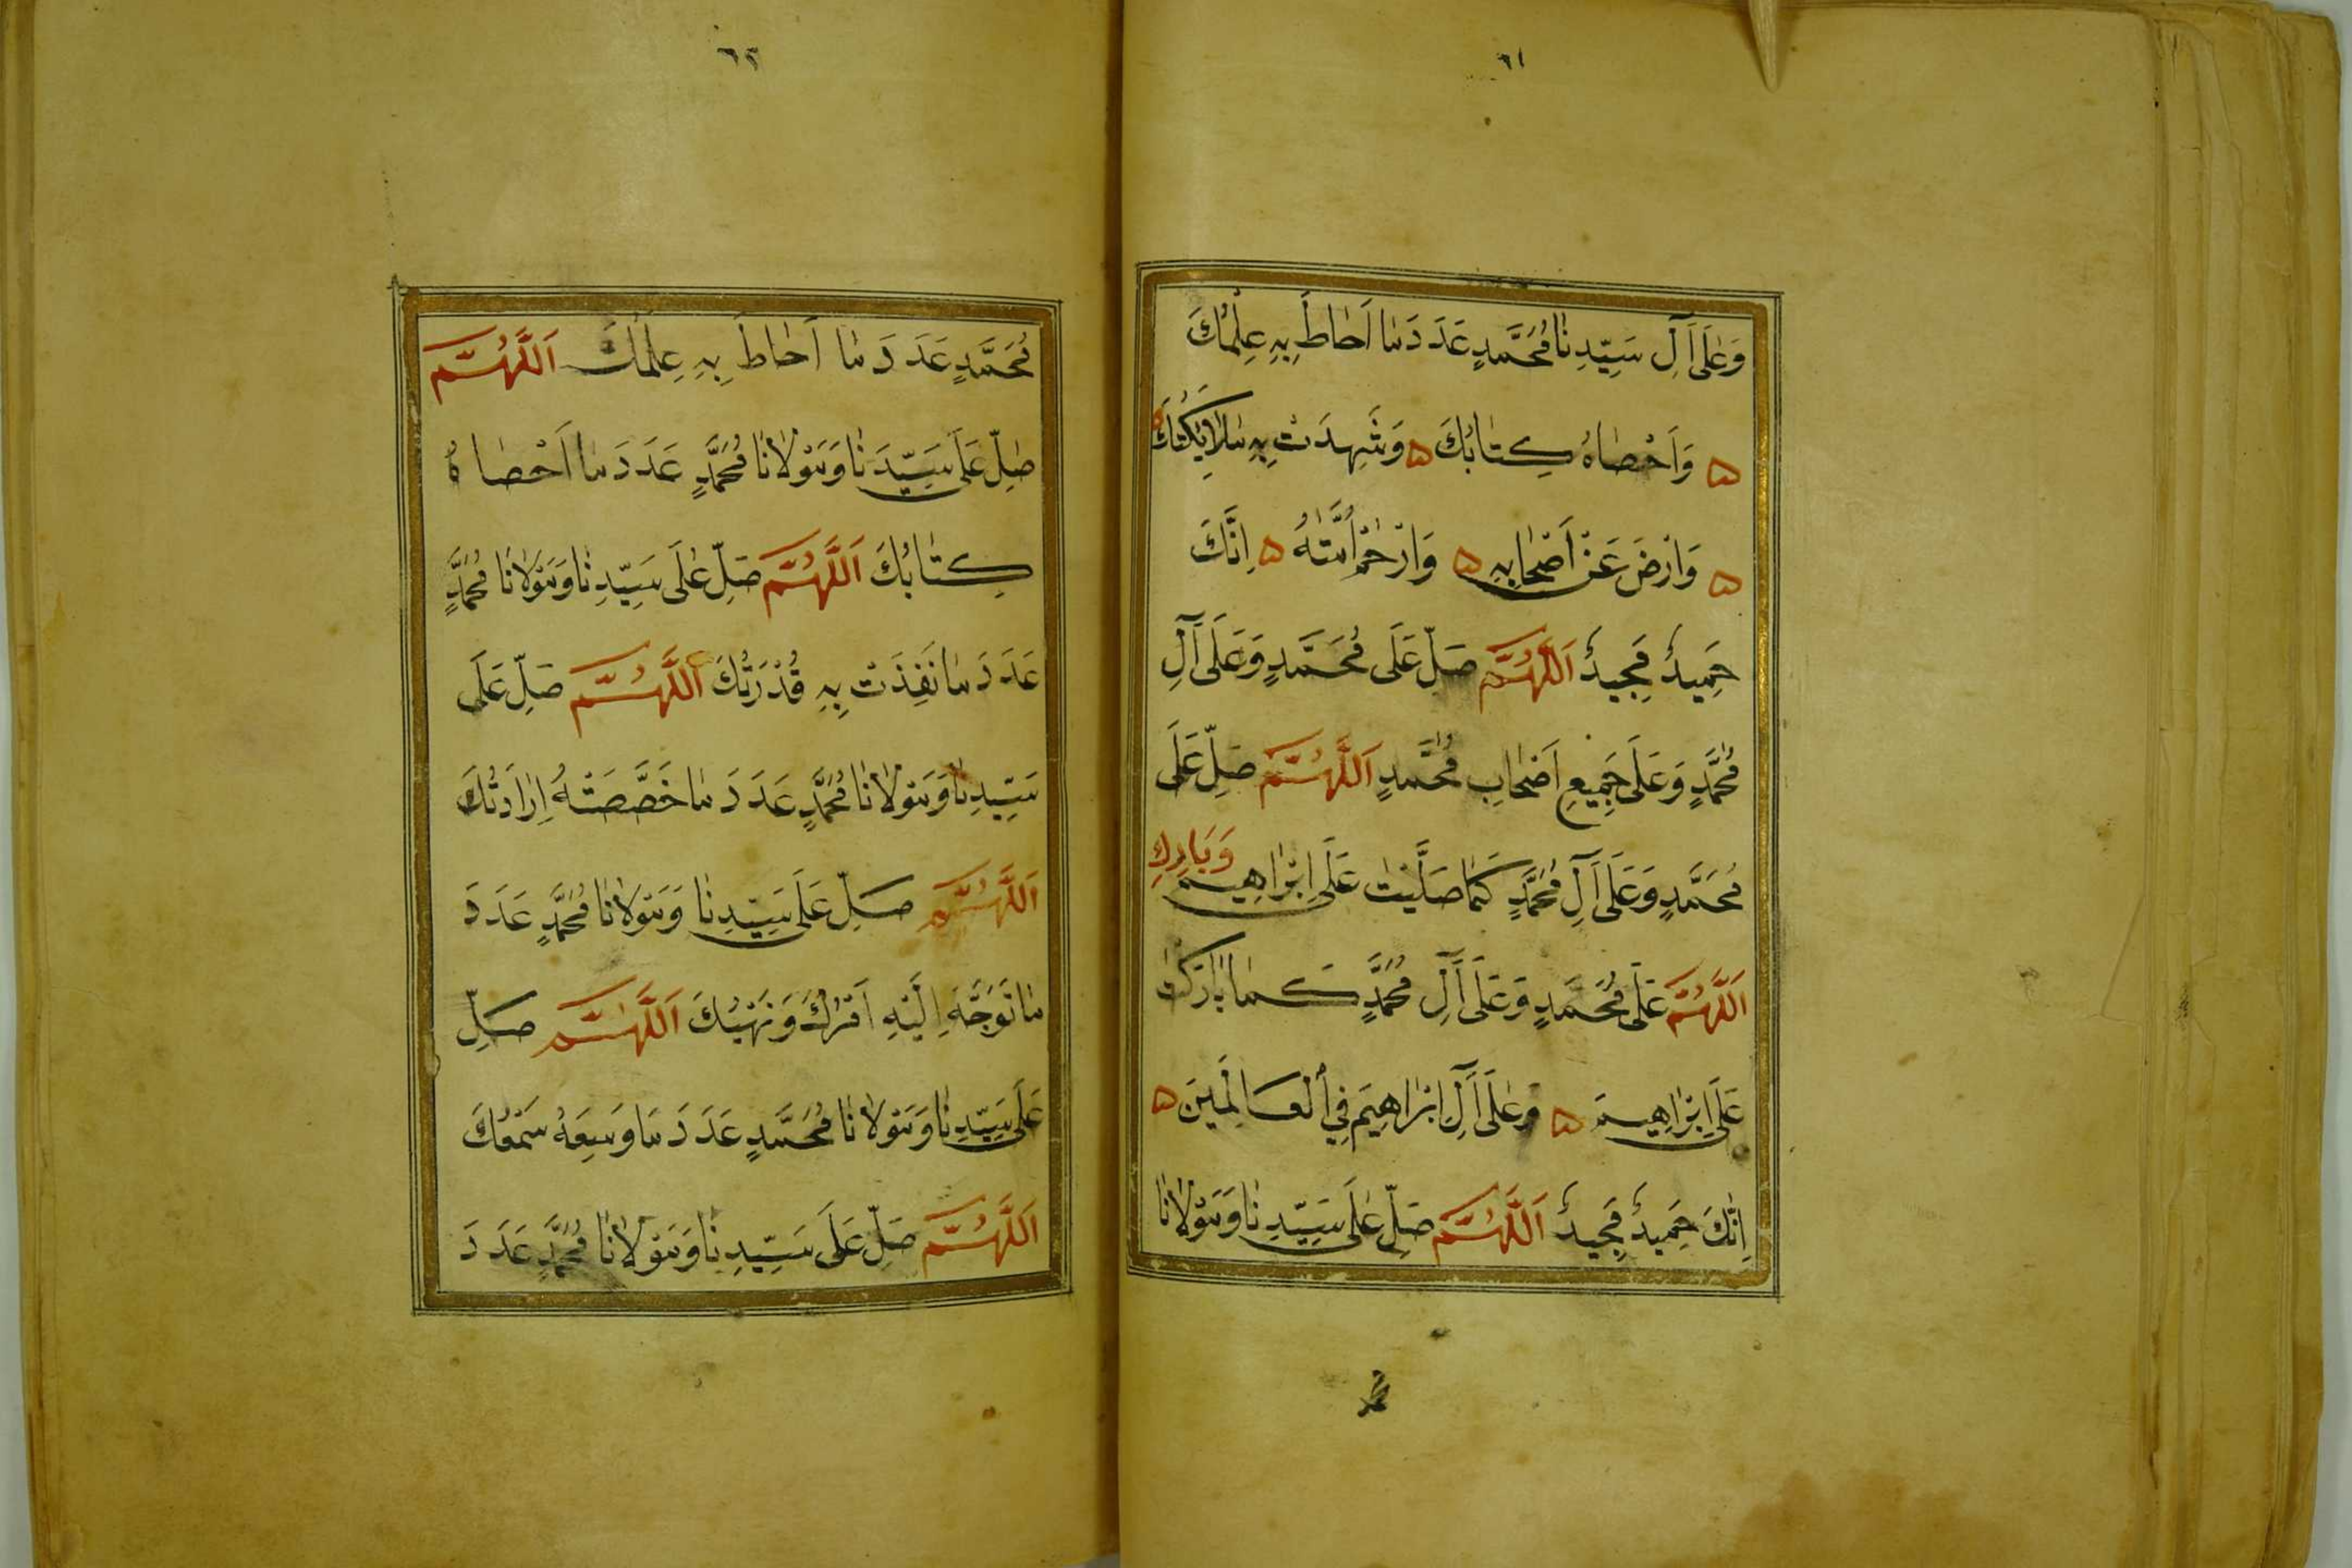 ٦١
وَعَلَى اَلِ سَيِّدِنَا مُحَمَّدٍ عَدَدَ مَا اَحَاطَ بِهِ عِلْمُكَ
وَاَحْصَاهُ كِتَابُكَ وَشَهِدَتْ بِهِ مَلَائِكَتُكَ
وَارْضَ عَنْ اَصْحَابِهِ وَارْحَمْ اُمَّتَهُ اِنَّكَ
حَمِيدٌ مَجِيدٌ اَللَّهُمَّ صَلِّ عَلَى مُحَمَّدٍ وَعَلَى اَلِ
مُحَمَّدٍ وَعَلَى جَمِيعِ اَصْحَابِ مُحَمَّدٍ اَللَّهُمَّ صَلِّ عَلَى
مُحَمَّدٍ وَعَلَى اَلِ مُحَمَّدٍ كَمَا صَلَّيْتَ عَلَى اِبْرَاهِيمَ وَبَارِكِ
اَللَّهُمَّ عَلَى مُحَمَّدٍ وَعَلَى اَلِ مُحَمَّدٍ كَمَا بَارَكْتَ
عَلَى اِبْرَاهِيمَ وَعَلَى اَلِ اِبْرَاهِيمَ فِي الْعَالَمِينَ
اِنَّكَ حَمِيدٌ مَجِيدٌ اَللَّهُمَّ صَلِّ عَلَى سَيِّدِنَا وَمَوْلَانَا
٦٢
مُحَمَّدٍ عَدَدَ مَا اَحَاطَ بِهِ عِلْمُكَ اَللَّهُمَّ
صَلِّ عَلَى سَيِّدِنَا وَمَوْلَانَا مُحَمَّدٍ عَدَدَ مَا اَحْصَاهُ
كِتَابُكَ اَللَّهُمَّ صَلِّ عَلَى سَيِّدِنَا وَمَوْلَانَا مُحَمَّدٍ
عَدَدَ مَا نَفِذَتْ بِهِ قُدْرَتُكَ اَللَّهُمَّ صَلِّ عَلَى
سَيِّدِنَا وَمَوْلَانَا مُحَمَّدٍ عَدَدَ مَا خَصَّصَتْهُ اِرَادَتُكَ
اَللَّهُمَّ صَلِّ عَلَى سَيِّدِنَا وَمَوْلَانَا مُحَمَّدٍ عَدَدَ
مَا تَوَجَّهَ اِلَيْهِ اَمْرُكَ وَنَهْيُكَ اَللَّهُمَّ صَلِّ
عَلَى سَيِّدِنَا وَمَوْلَانَا مُحَمَّدٍ عَدَدَ مَا وَسِعَهُ سَمْعُكَ
اَللَّهُمَّ صَلِّ عَلَى سَيِّدِنَا وَمَوْلَانَا مُحَمَّدٍ عَدَدَ